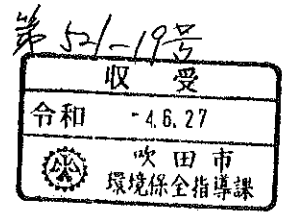 第521-19号
収受
令和 -4.6.27
吹田市
環境保全指導課